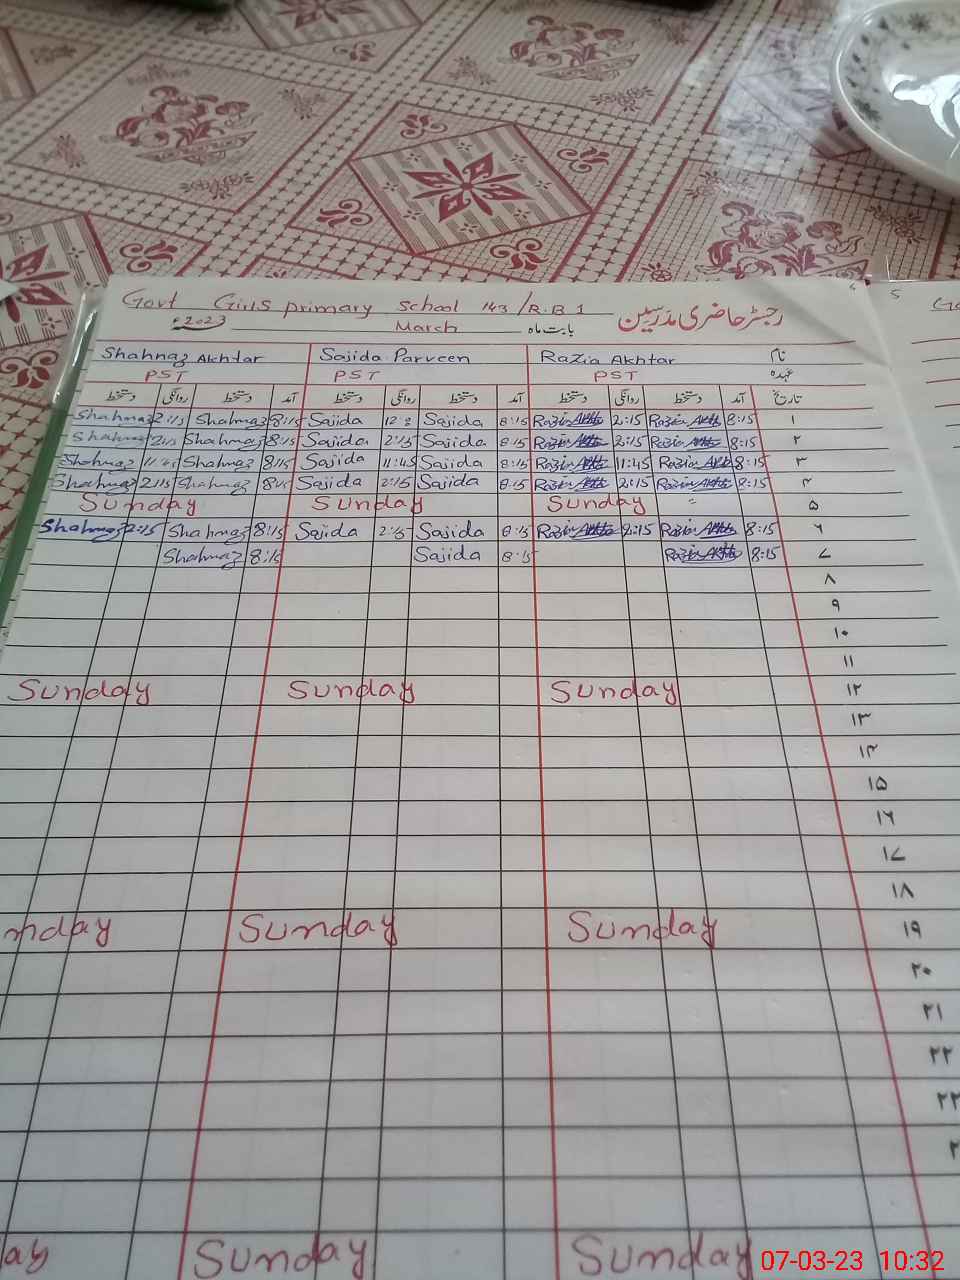 Govt Girls primary school 143/R.B 1
رجسٹر حاضری مدرسین بابت ماہ March 2023ء
نام Razia Akhtar Sajida Parveen Shahnaz Akhtar
عہدہ PST PST PST
تاریخ آمد دستخط روانگی دستخط آمد دستخط روانگی دستخط آمد دستخط روانگی دستخط
۱ 8:15 Razia Akhtar 2:15 Razia Akhtar 8:15 Sajida Sajida 8:15 Shahnaz 2:15 Shahnaz
۲ 8:15 Razia Akhtar 2:15 Razia Akhtar 8:15 Sajida 2:15 Sajida 8:15 Shahnaz 2:15 Shahnaz
۳ 8:15 Razia Akhtar 11:45 Razia Akhtar 8:15 Sajida 11:45 Sajida 8:15 Shahnaz 11:45 Shahnaz
۴ 8:15 Razia Akhtar 2:15 Razia Akhtar 8:15 Sajida 2:15 Sajida 8:15 Shahnaz 2:15 Shahnaz
۵ Sunday Sunday Sunday
۶ 8:15 Razia Akhtar 2:15 Razia Akhtar 8:15 Sajida 2:15 Sajida 8:15 Shahnaz 2:15 Shahnaz
۷ 8:15 Razia Akhtar 8:15 Sajida 8:15 Shahnaz
۸
۹
۱۰
۱۱
۱۲ Sunday Sunday Sunday
۱۳
۱۴
۱۵
۱۶
۱۷
۱۸
۱۹ Sunday Sunday nday
۲۰
۲۱
۲۲
۲۳
Sunday Sunday ay
07-03-23 10:32